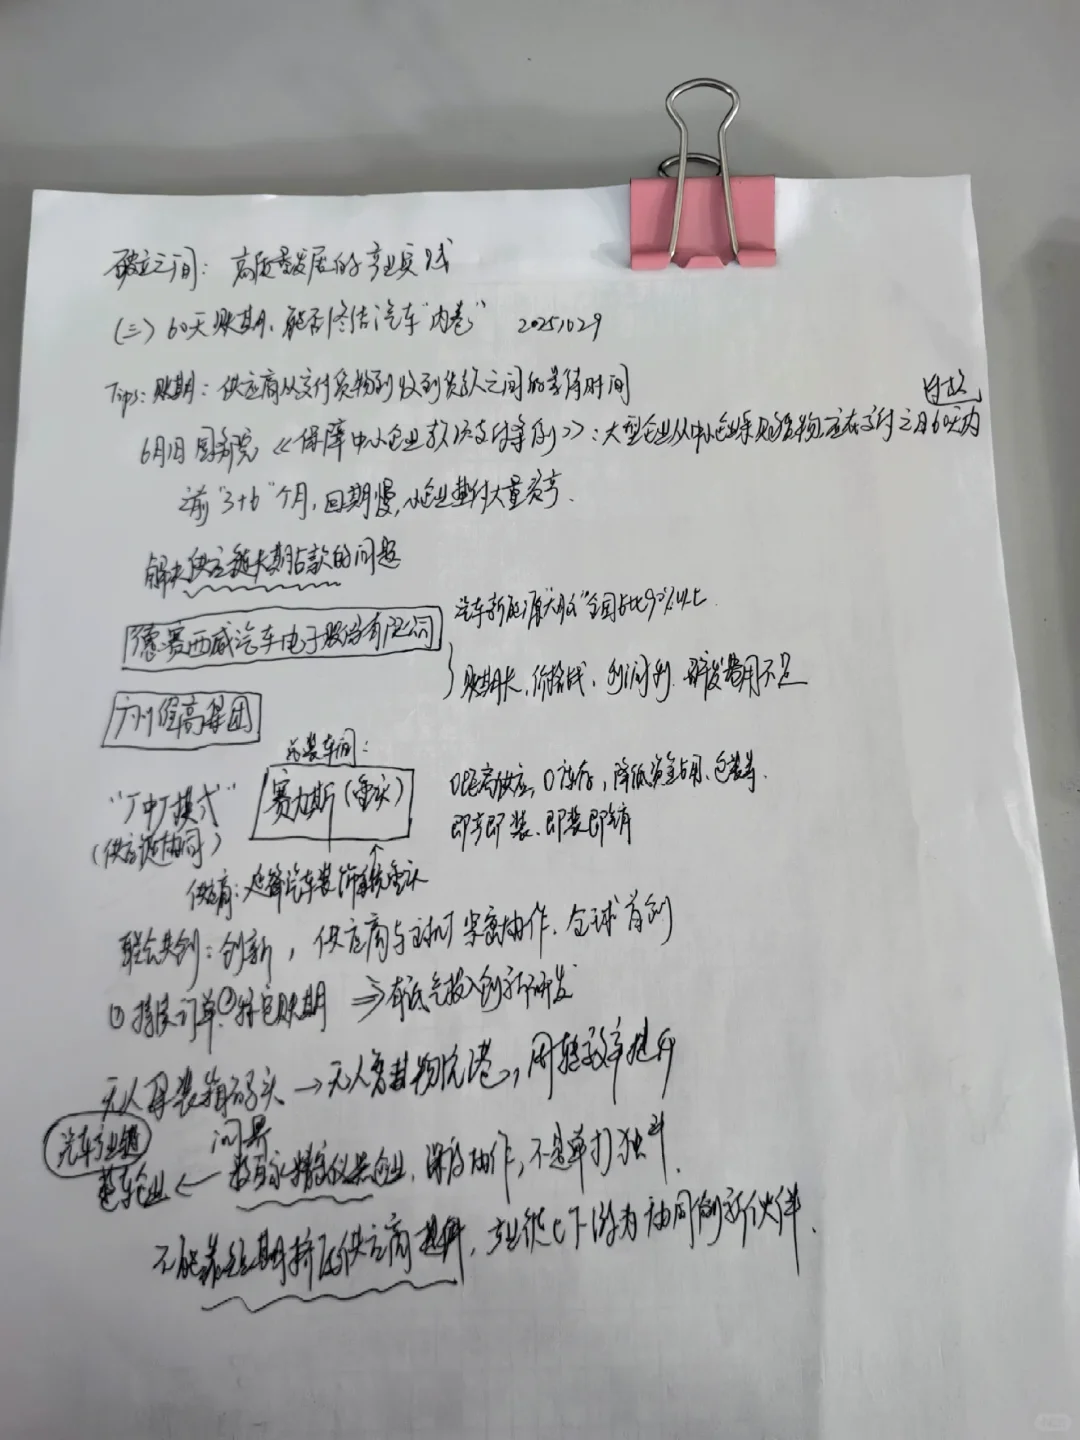 破立之间：高质量发展的产业实践
（三）60天账期，能否终结汽车"内卷" 20251029
Tips：账期：供应商从交付货物到收到货款之间的等待时间
付款
6月1日 国务院《保障中小企业款项支付条例》：大型企业从中小企业采购货物应在交付之日60天内
之前"3+6"个月，回期慢，小企业垫付大量资
解决供应链长期占款的问题
汽车新能源 全国占比 %以上
德赛西威汽车电子股份有限公司
账期长，价格战，利润 研发费用不足
广州 高集团
总装车间：
赛力斯（重庆）
0距离供应，0库存，降低资金占用、包装等.
"厂中厂模式"
即产即装、即装即销
（供应链协同）
供应商：延锋汽车装饰系统重庆
联合共创：创新，供应商与主机厂紧密协作．全球首创
① 持续订单 ②稳定账期 ⇒ 有底气投入创新研发
无人 装箱码头 → 无人智慧物流港，周转效率提升
汽车产业链
问界
整车企业 ← 数百家 企业，深度协作，不是单打独斗．
不能靠 期挤压供应商 ，产业链上下游为协同创新伙伴．